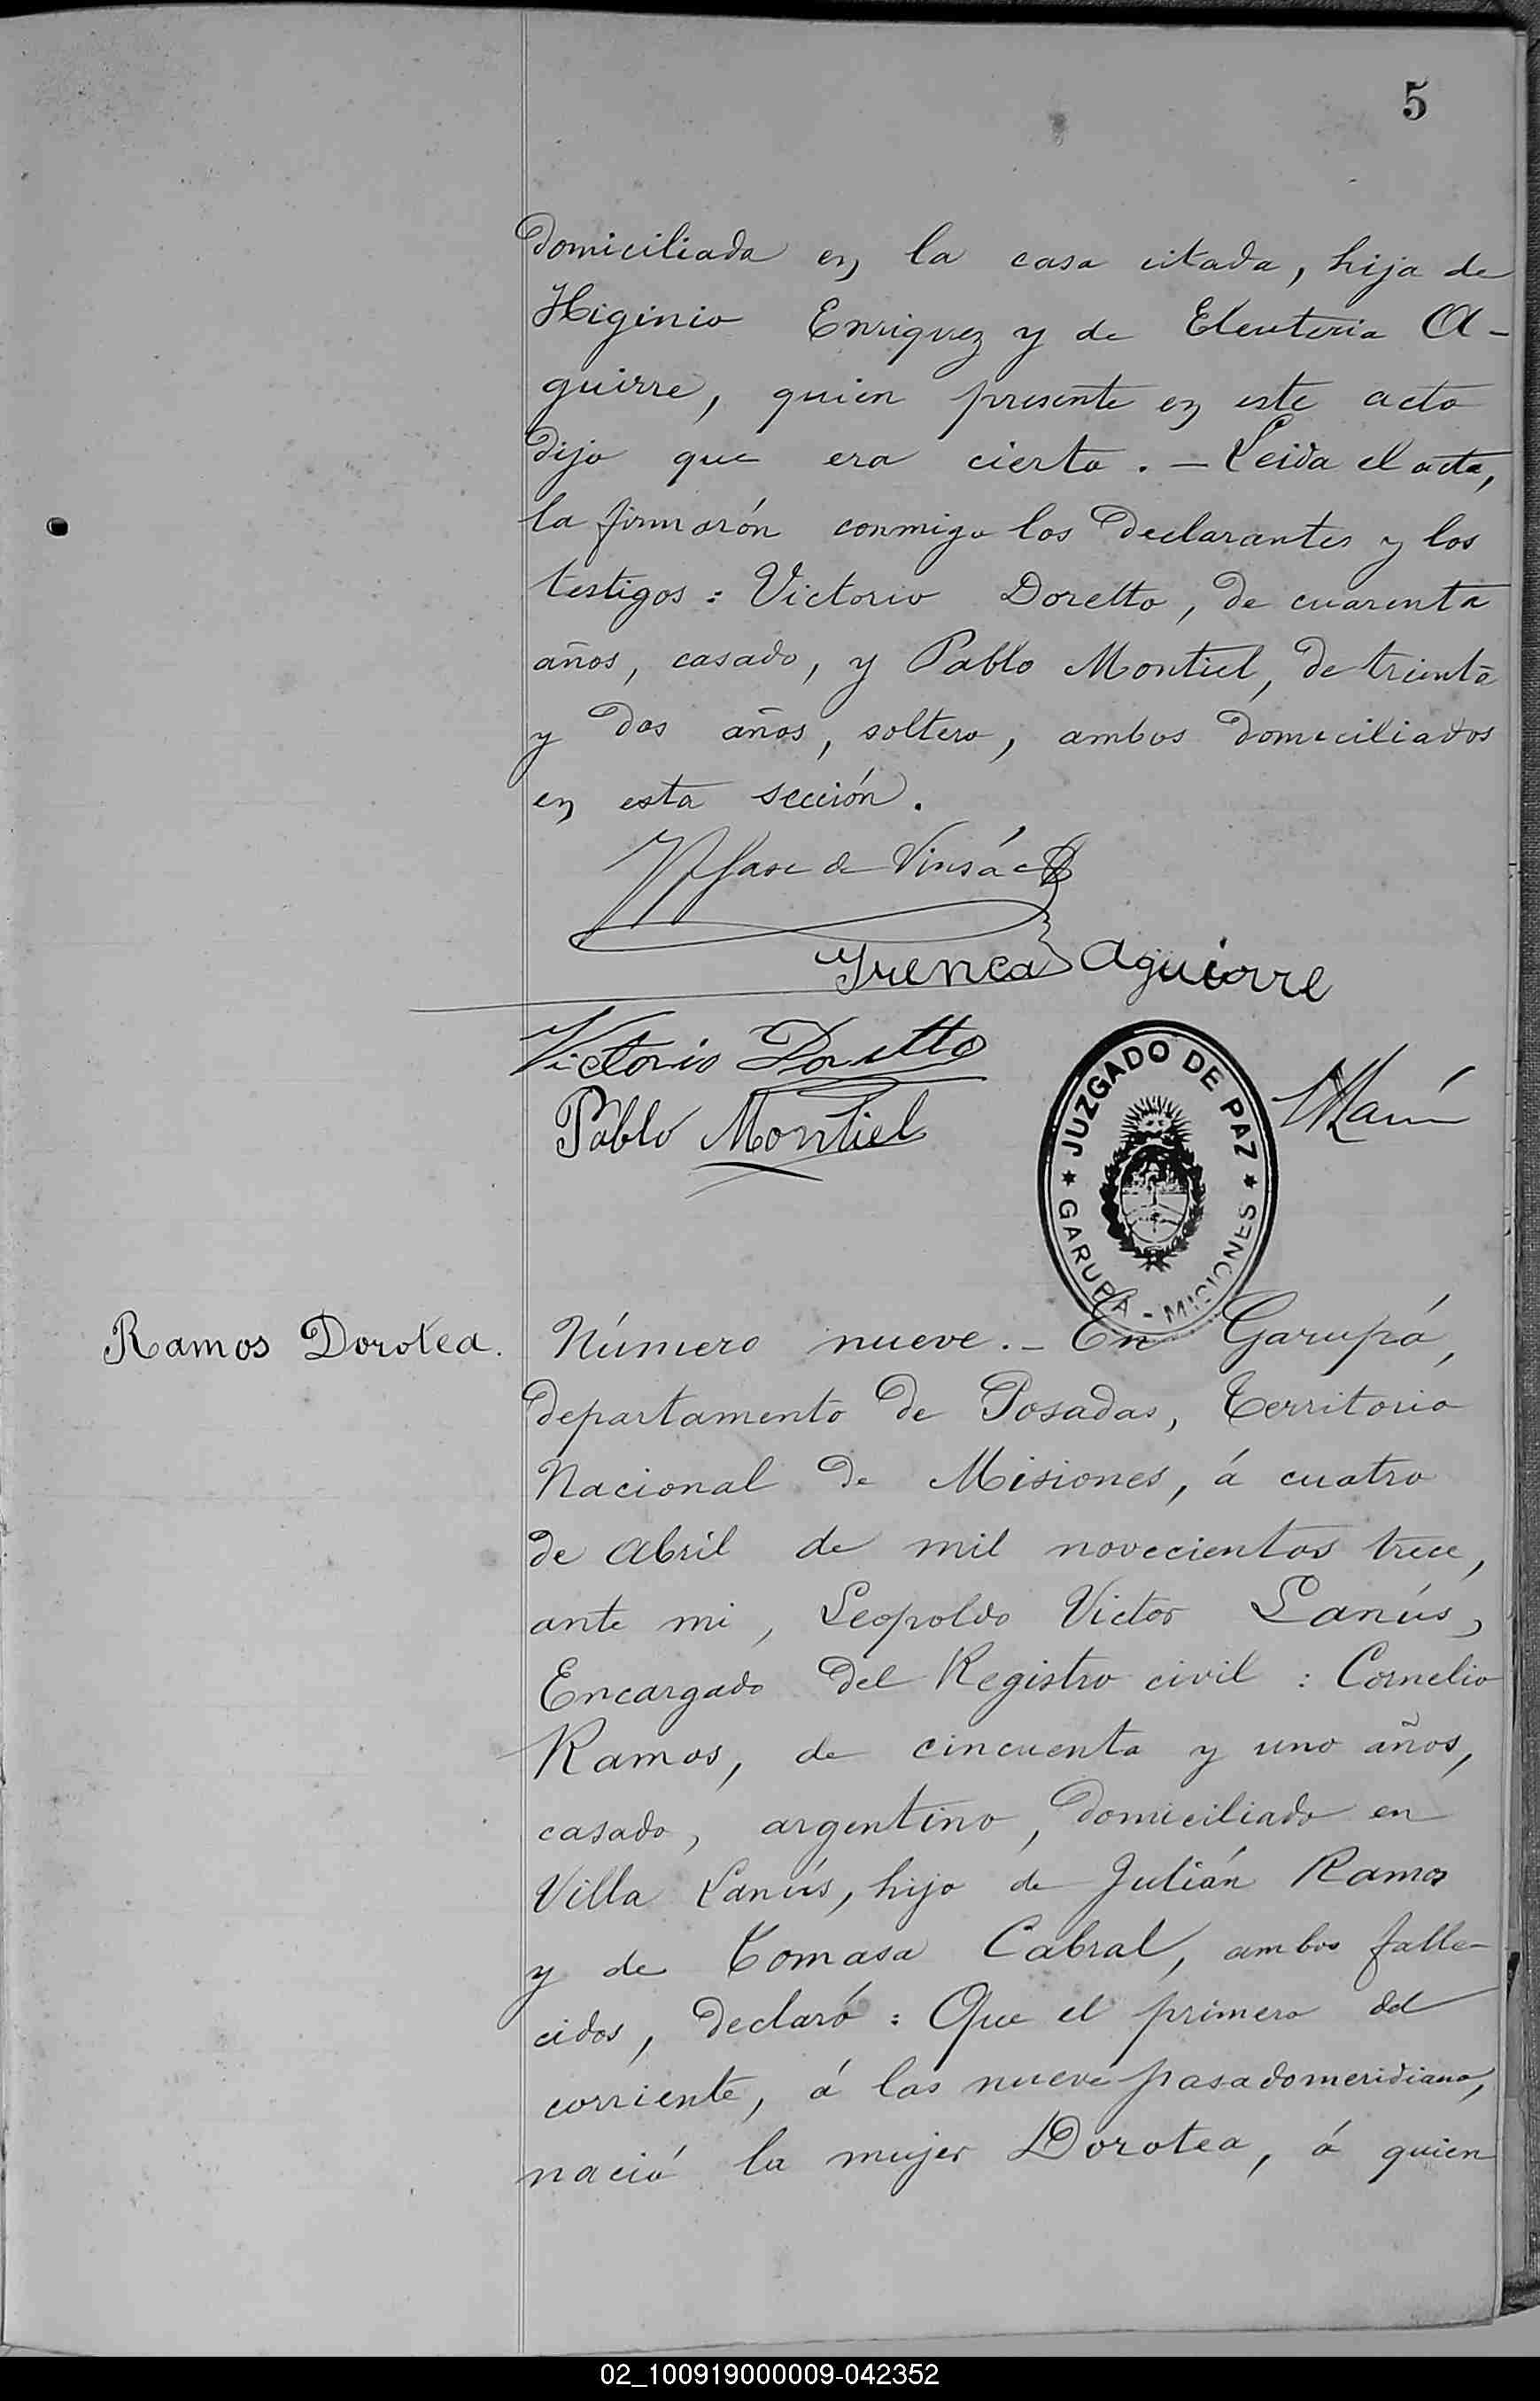 5
domiciliada en la casa citada, hija de
Higinio Enriquez y de Eleuteria A-
guirre, quien presente en este acto
dijo que era cierto. — Leida el acta,
la firmarón conmigo los declarantes y los
testigos: Victorio Doretto, de cuarenta
años, casado, y Pablo Montiel, de treinta
y dos años, soltero, ambos domiciliados
en esta sección.
de Vinsác
Irenea Aguirre
Victorio Doretto
Pablo Montiel
JUZGADO DE PAZ
GARUPÁ - MISIONES
Ramos Dorotea.
Número nueve. — En Garupá,
departamento de Posadas, Territorio
Nacional de Misiones, á cuatro
de Abril de mil novecientos trece,
ante mi, Leopoldo Victor Lanús,
Encargado del Registro civil: Cornelio
Ramos, de cincuenta y uno años,
casado, argentino, domiciliado en
Villa Lanús, hijo de Julián Ramos
y de Tomasa Cabral, ambos falle-
cidos, declaró: Que el primero del
corriente, á las nueve pasadomeridiano,
nació la mujer Dorotea, á quien
02_100919000009-042352